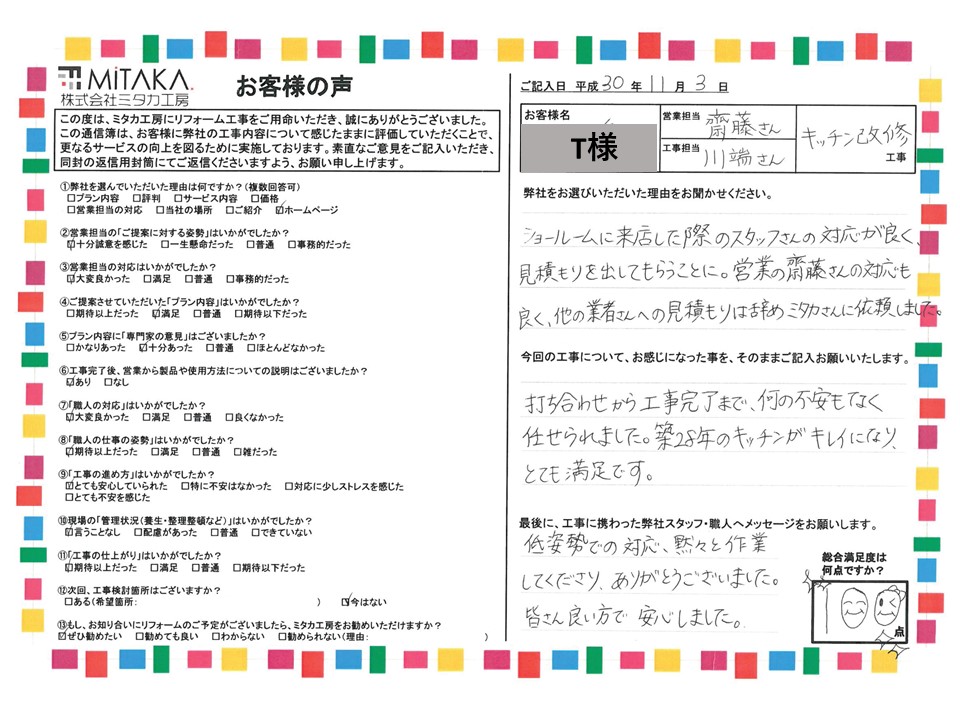 MiTAKA.
株式会社ミタカ工房
お客様の声
この度は、ミタカ工房にリフォーム工事をご用命いただき、誠にありがとうございました。
この通信簿は、お客様に弊社の工事内容について感じたままに評価していただくことで、
更なるサービスの向上を図るために実施しております。素直なご意見をご記入いただき、
同封の返信用封筒にてご返信くださいますよう、お願い申し上げます。
①弊社を選んでいただいた理由は何ですか?(複数回答可)
□プラン内容 □評判 □サービス内容 □価格
□営業担当の対応 □当社の場所 □ご紹介 ☑ホームページ
②営業担当の「ご提案に対する姿勢」はいかがでしたか?
☑十分誠意を感じた □一生懸命だった □普通 □事務的だった
③営業担当の対応はいかがでしたか?
☑大変良かった □満足 □普通 □事務的だった
④ご提案させていただいた「プラン内容」はいかがでしたか?
□期待以上だった ☑満足 □普通 □期待以下だった
⑤プラン内容に「専門家の意見」はございましたか?
□かなりあった ☑十分あった □普通 □ほとんどなかった
⑥工事完了後、営業から製品や使用方法についての説明はございましたか?
☑あり □なし
⑦「職人の対応」はいかがでしたか?
☑大変良かった □満足 □普通 □良くなかった
⑧「職人の仕事の姿勢」はいかがでしたか?
☑期待以上だった □満足 □普通 □雑だった
⑨「工事の進め方」はいかがでしたか?
☑とても安心していられた □特に不安はなかった □対応に少しストレスを感じた
□とても不安を感じた
⑩現場の「管理状況(養生・整理整頓など)」はいかがでしたか?
☑言うことなし □配慮があった □普通 □できていない
⑪「工事の仕上がり」はいかがでしたか?
☑期待以上だった □満足 □普通 □期待以下だった
⑫次回、工事検討箇所はございますか?
□ある(希望箇所: ) ☑今はない
⑬もし、お知り合いにリフォームのご予定がございましたら、ミタカ工房をお勧めいただけますか?
☑ぜひ勧めたい □勧めても良い □わからない □勧められない(理由: )
ご記入日 平成 30 年 11 月 3 日
お客様名
T様
営業担当 齋藤さん
工事担当 川端さん
キッチン改修
工事
弊社をお選びいただいた理由をお聞かせください。
ショールームに来店した際のスタッフさんの対応が良く、
見積もりを出してもらうことに。営業の齋藤さんの対応も
良く、他の業者さんへの見積もりは辞めミタカさんに依頼しました。
今回の工事について、お感じになった事を、そのままご記入お願いいたします。
打ち合わせから工事完了まで、何の不安もなく
任せられました。築28年のキッチンがキレイになり、
とても満足です。
最後に、工事に携わった弊社スタッフ・職人へメッセージをお願いします。
低姿勢での対応、黙々と作業
してくださり、ありがとうございました。
皆さん良い方で安心しました。
総合満足度は
何点ですか?
100
点